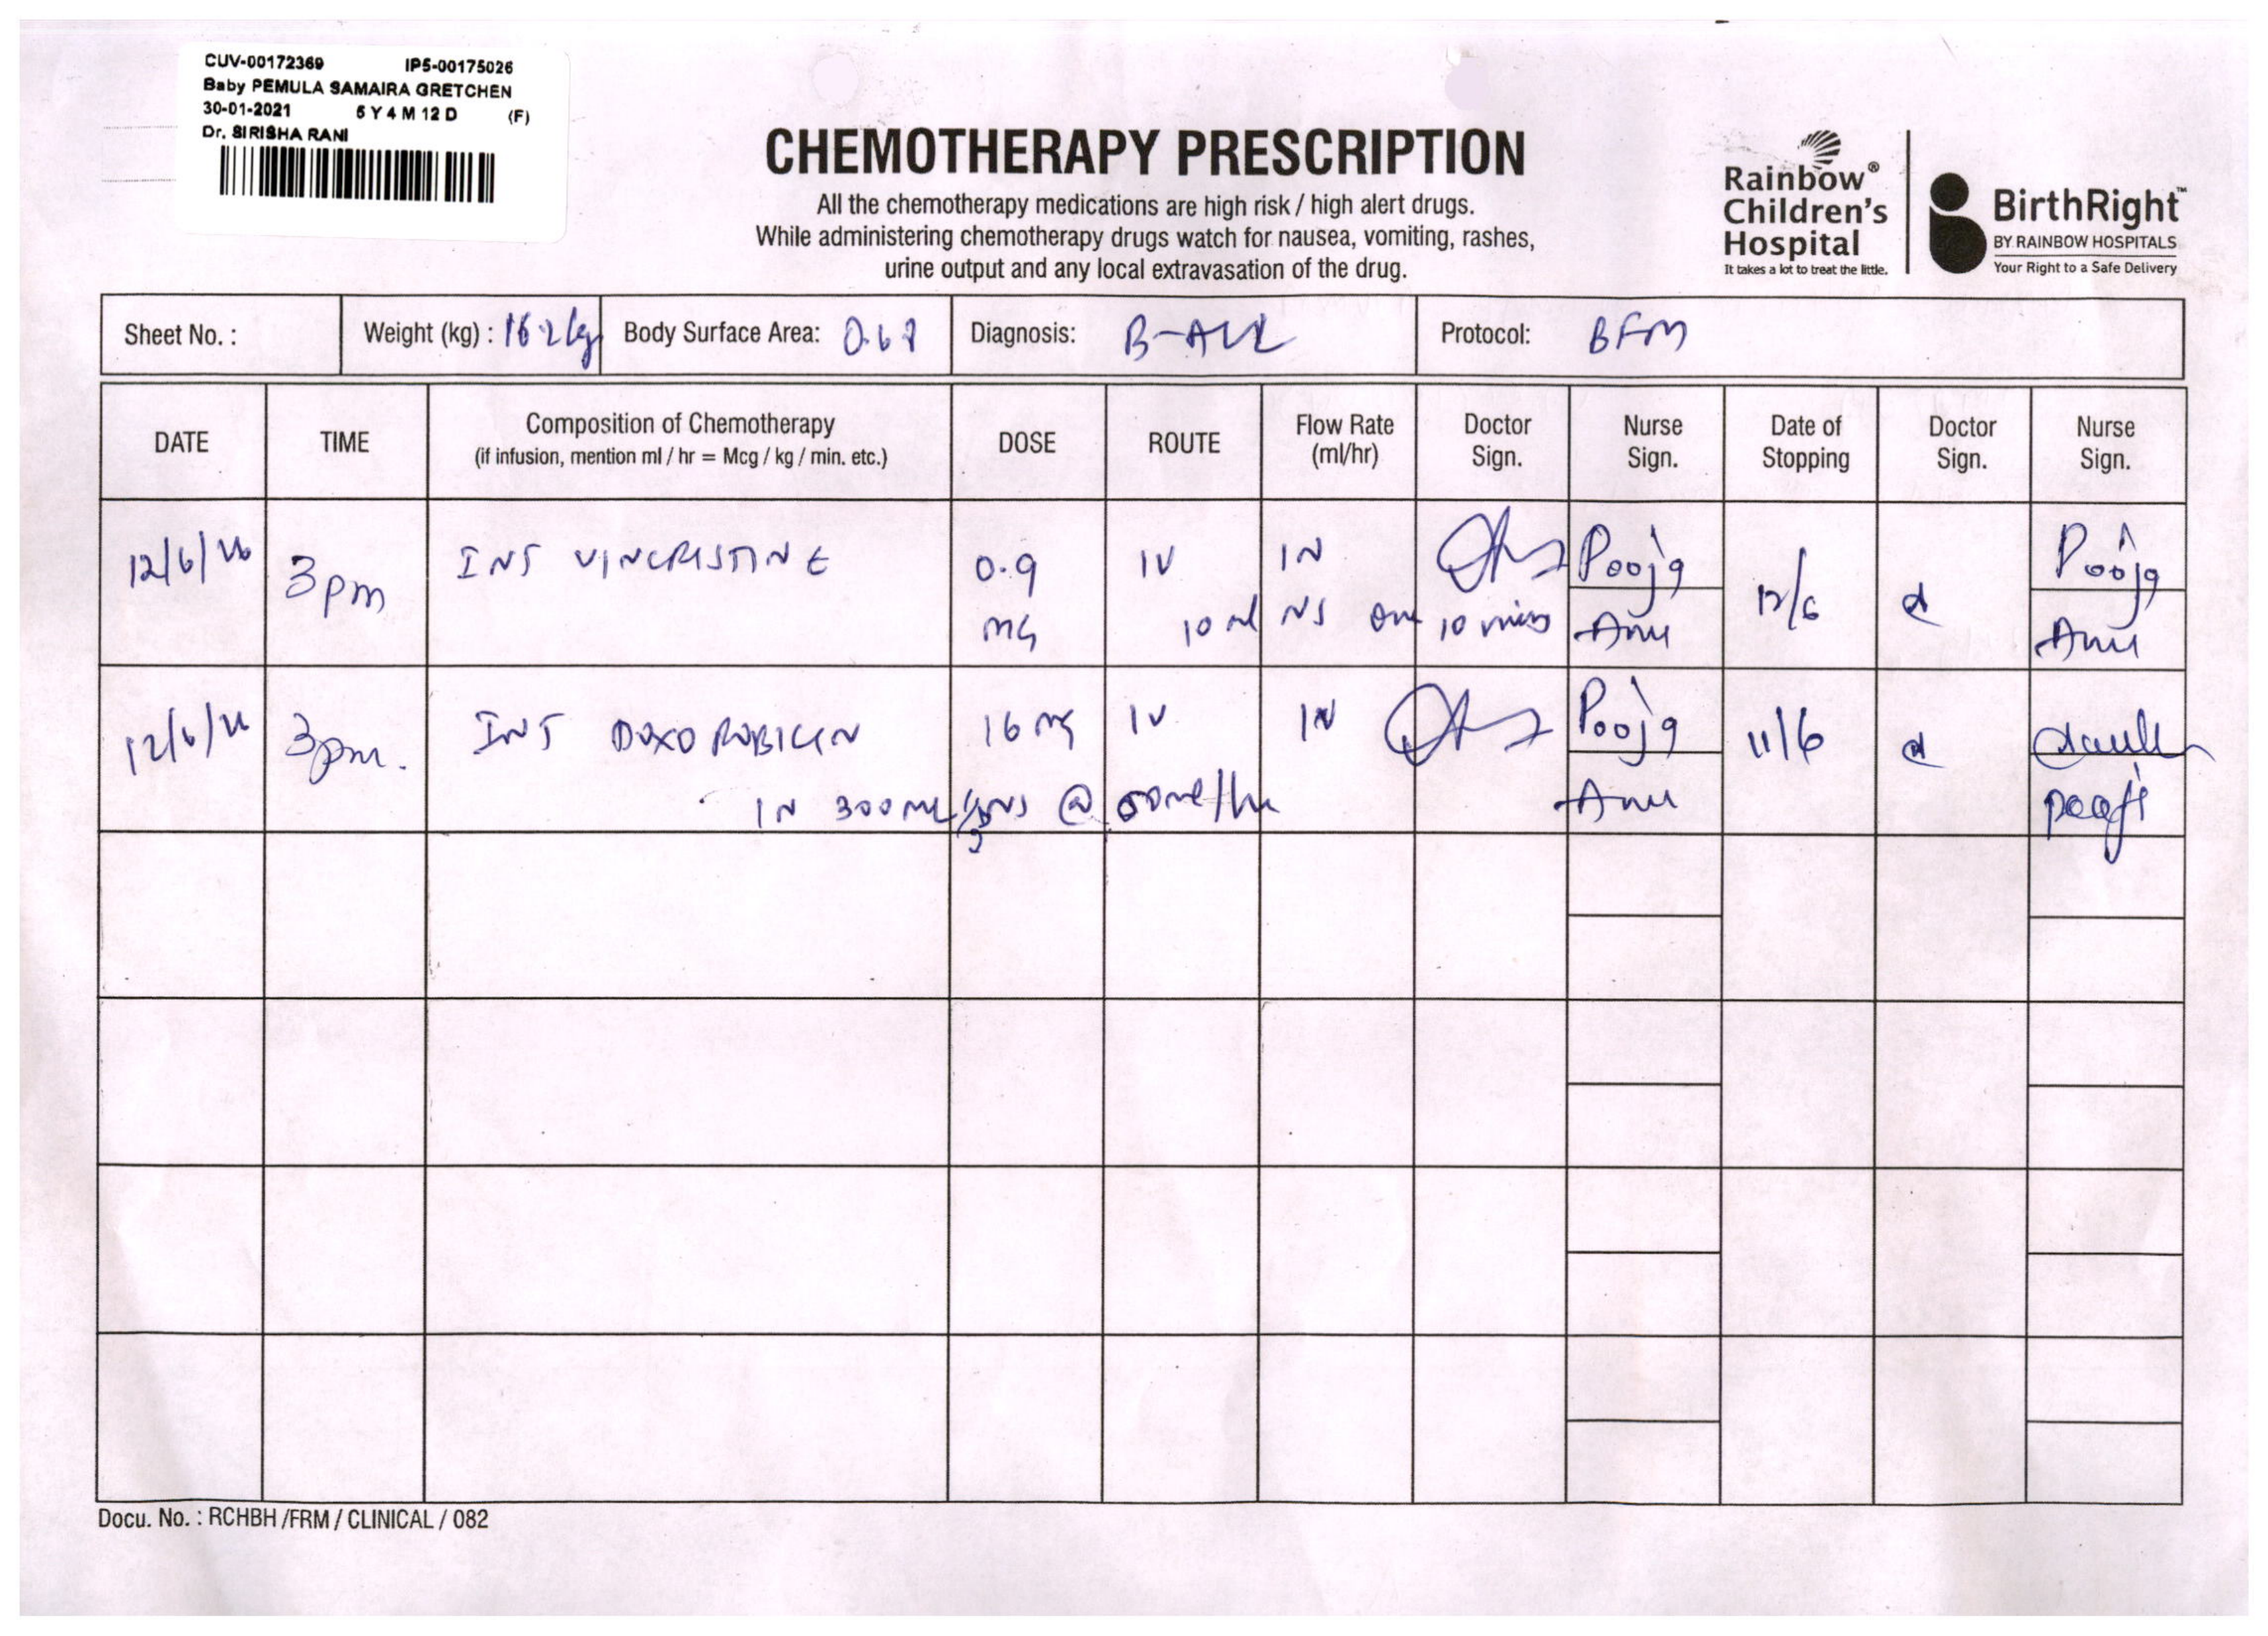 CUV-00172369 IP5-00175026
Baby PEMULA SAMAIRA GRETCHEN
30-01-2021 5 Y 4 M 12 D (F)
Dr. SIRISHA RANI
CHEMOTHERAPY PRESCRIPTION
All the chemotherapy medications are high risk / high alert drugs.
While administering chemotherapy drugs watch for nausea, vomiting, rashes,
urine output and any local extravasation of the drug.
Rainbow® Children's Hospital
It takes a lot to treat the little.
BirthRight™
BY RAINBOW HOSPITALS
Your Right to a Safe Delivery
Sheet No. : Weight (kg) : 16.2kg Body Surface Area: Diagnosis: B-ALL Protocol: BFM
DATE TIME Composition of Chemotherapy (if infusion, mention ml / hr = Mcg / kg / min. etc.) DOSE ROUTE Flow Rate (ml/hr) Doctor Sign. Nurse Sign. Date of Stopping Doctor Sign. Nurse Sign.
12/6/26 3pm INJ VINCRISTINE 0.9 IV IN Pooja 12/6 Pooja
mg 10 ml NS over 10 mins Anu Anu
12/6/26 3pm. INJ DOXORUBICIN 16 mg IV IN Pooja 11/6
IN 300ml NS @ Anu
Docu. No. : RCHBH /FRM / CLINICAL / 082